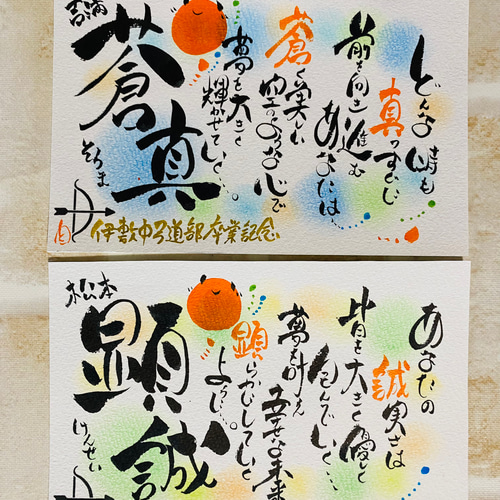 どんな時も
真っすぐに
前を向き進む
あなたは
蒼く美しい
空のような心で
夢を大きく
輝かせていく…。
蒼真
そうま
伊敷中弓道部卒業記念
あなたの
誠実さは
皆を大きく優しく
包んでいく
夢を叶え
幸せな未来
顕らかにしていく
松本
顕誠
けんせい